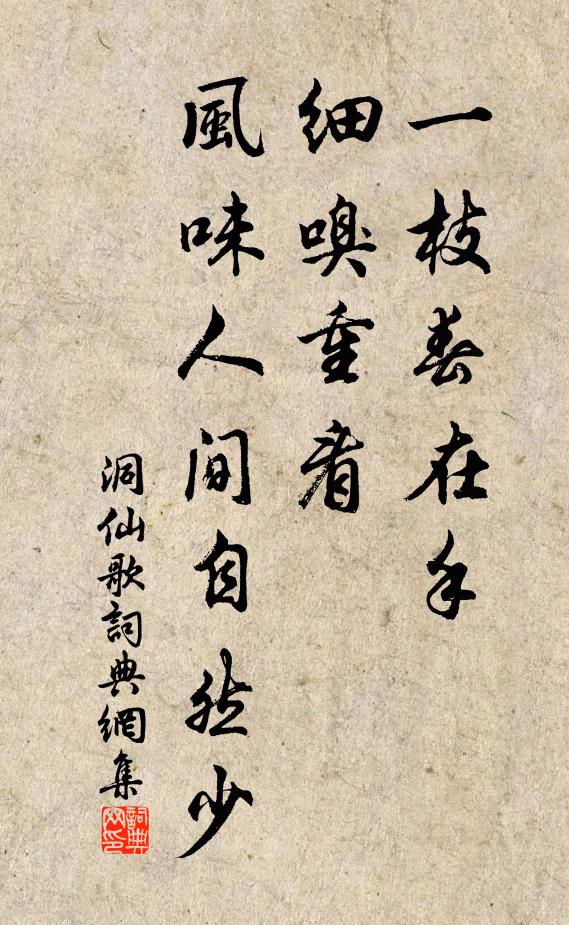 一枝春在手
細嗅重看
風味人間自然少
洞仙歌詞典網集
詞典网印